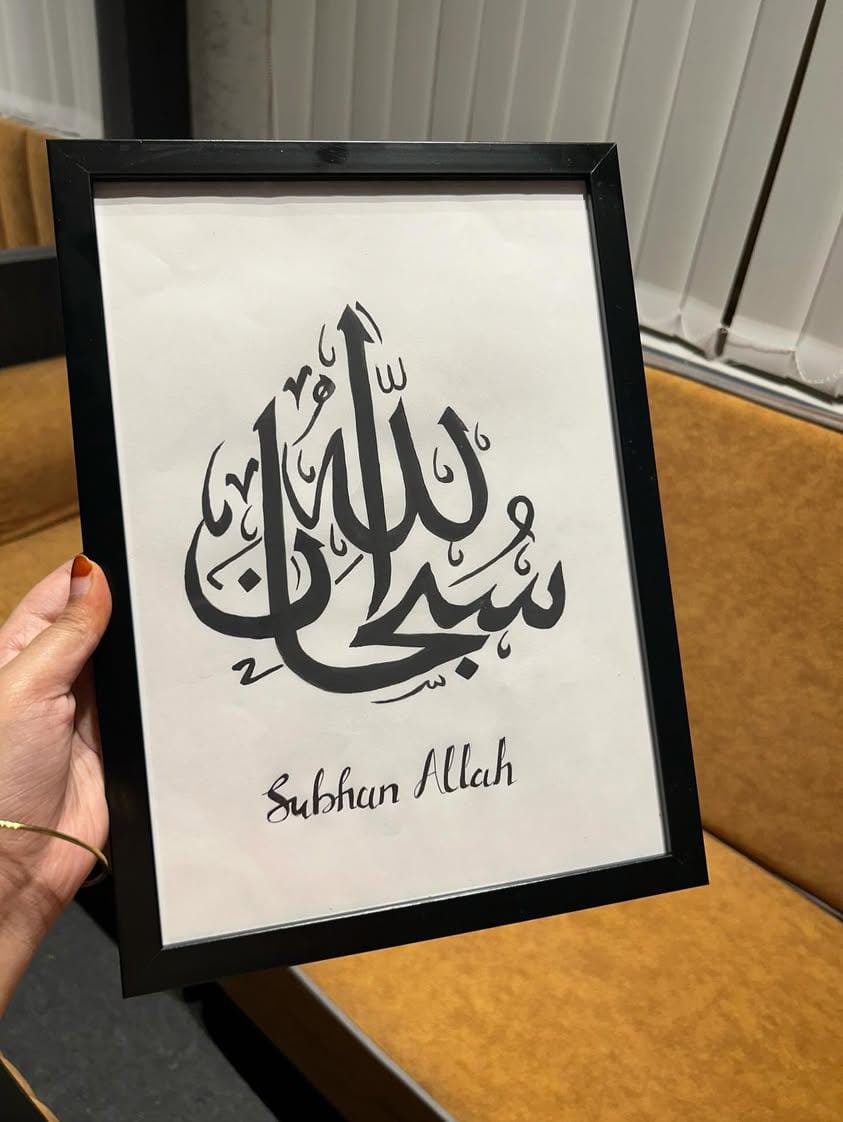 سُبْحَانَ اللّٰهُ
Subhan Allah